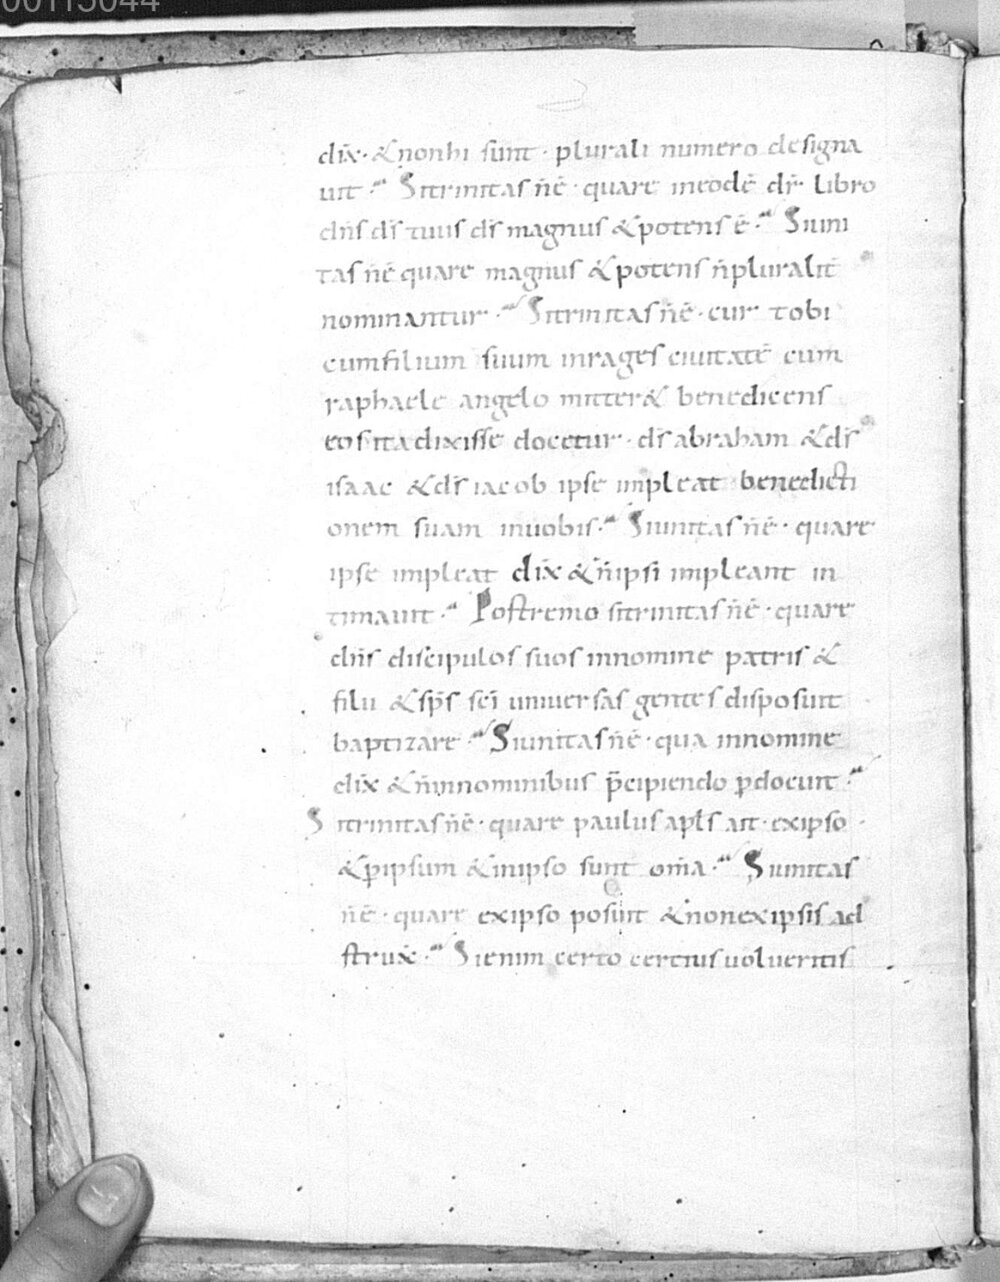 00115044
dix̄· & non hi sunt · plurali numero designa
uit · Si trinitas ñ ē · quare in eodē dr̄ libro
dñs ds̄ tuus ds̄ magnus & potens ē · Si uni
tas ñ ē quare magnus & potens ñ pluralit̄
nominantur · Si trinitas ñ ē · cur tobi
cum filium suum in rages ciuitatē cum
raphaele angelo mitter& benedicens
eos ita dixisse docetur · ds̄ abraham & ds̄
isaac & ds̄ iacob ipse impleat benedicti
onem suam in uobis · Si unitas ñ ē · quare
ipse impleat dix̄ & ñ ipsi impleant in
timauit · Postremo si trinitas ñ ē · quare
dñs discipulos suos in nomine patris &
filii & sp̄s sc̄i uniuersas gentes disposuit
baptizare · Si unitas ñ ē · qua in nomine
dix̄ & ñ in nominibus p̄cipiendo p̱docuit ·
Si trinitas ñ ē · quare paulus apl̄s ait · ex ipso
& p̱ ipsum & in ipso sunt om̄a · Si unitas
ñ ē · quare ex ipso posuit & non ex ipsis ad
strux̄ · Si enim certo certius uolueritis